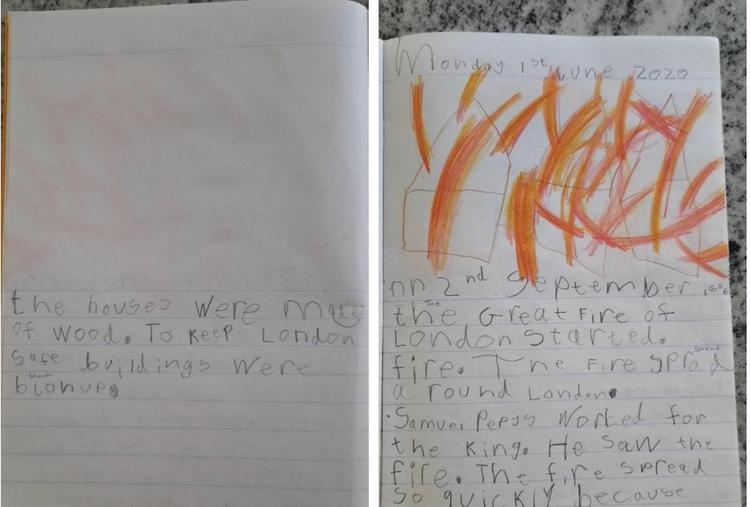 Monday 1st June 2020
on 2nd September
The
the Great Fire of
London Started.
spread
fire. The Fire sprad
a round London.
Samuel Pepys Worked for
the King. He Saw the
fire. The fire spread
so quickly because
the houses were made
of wood. To keep London
safe buildings were
blown
blonup.